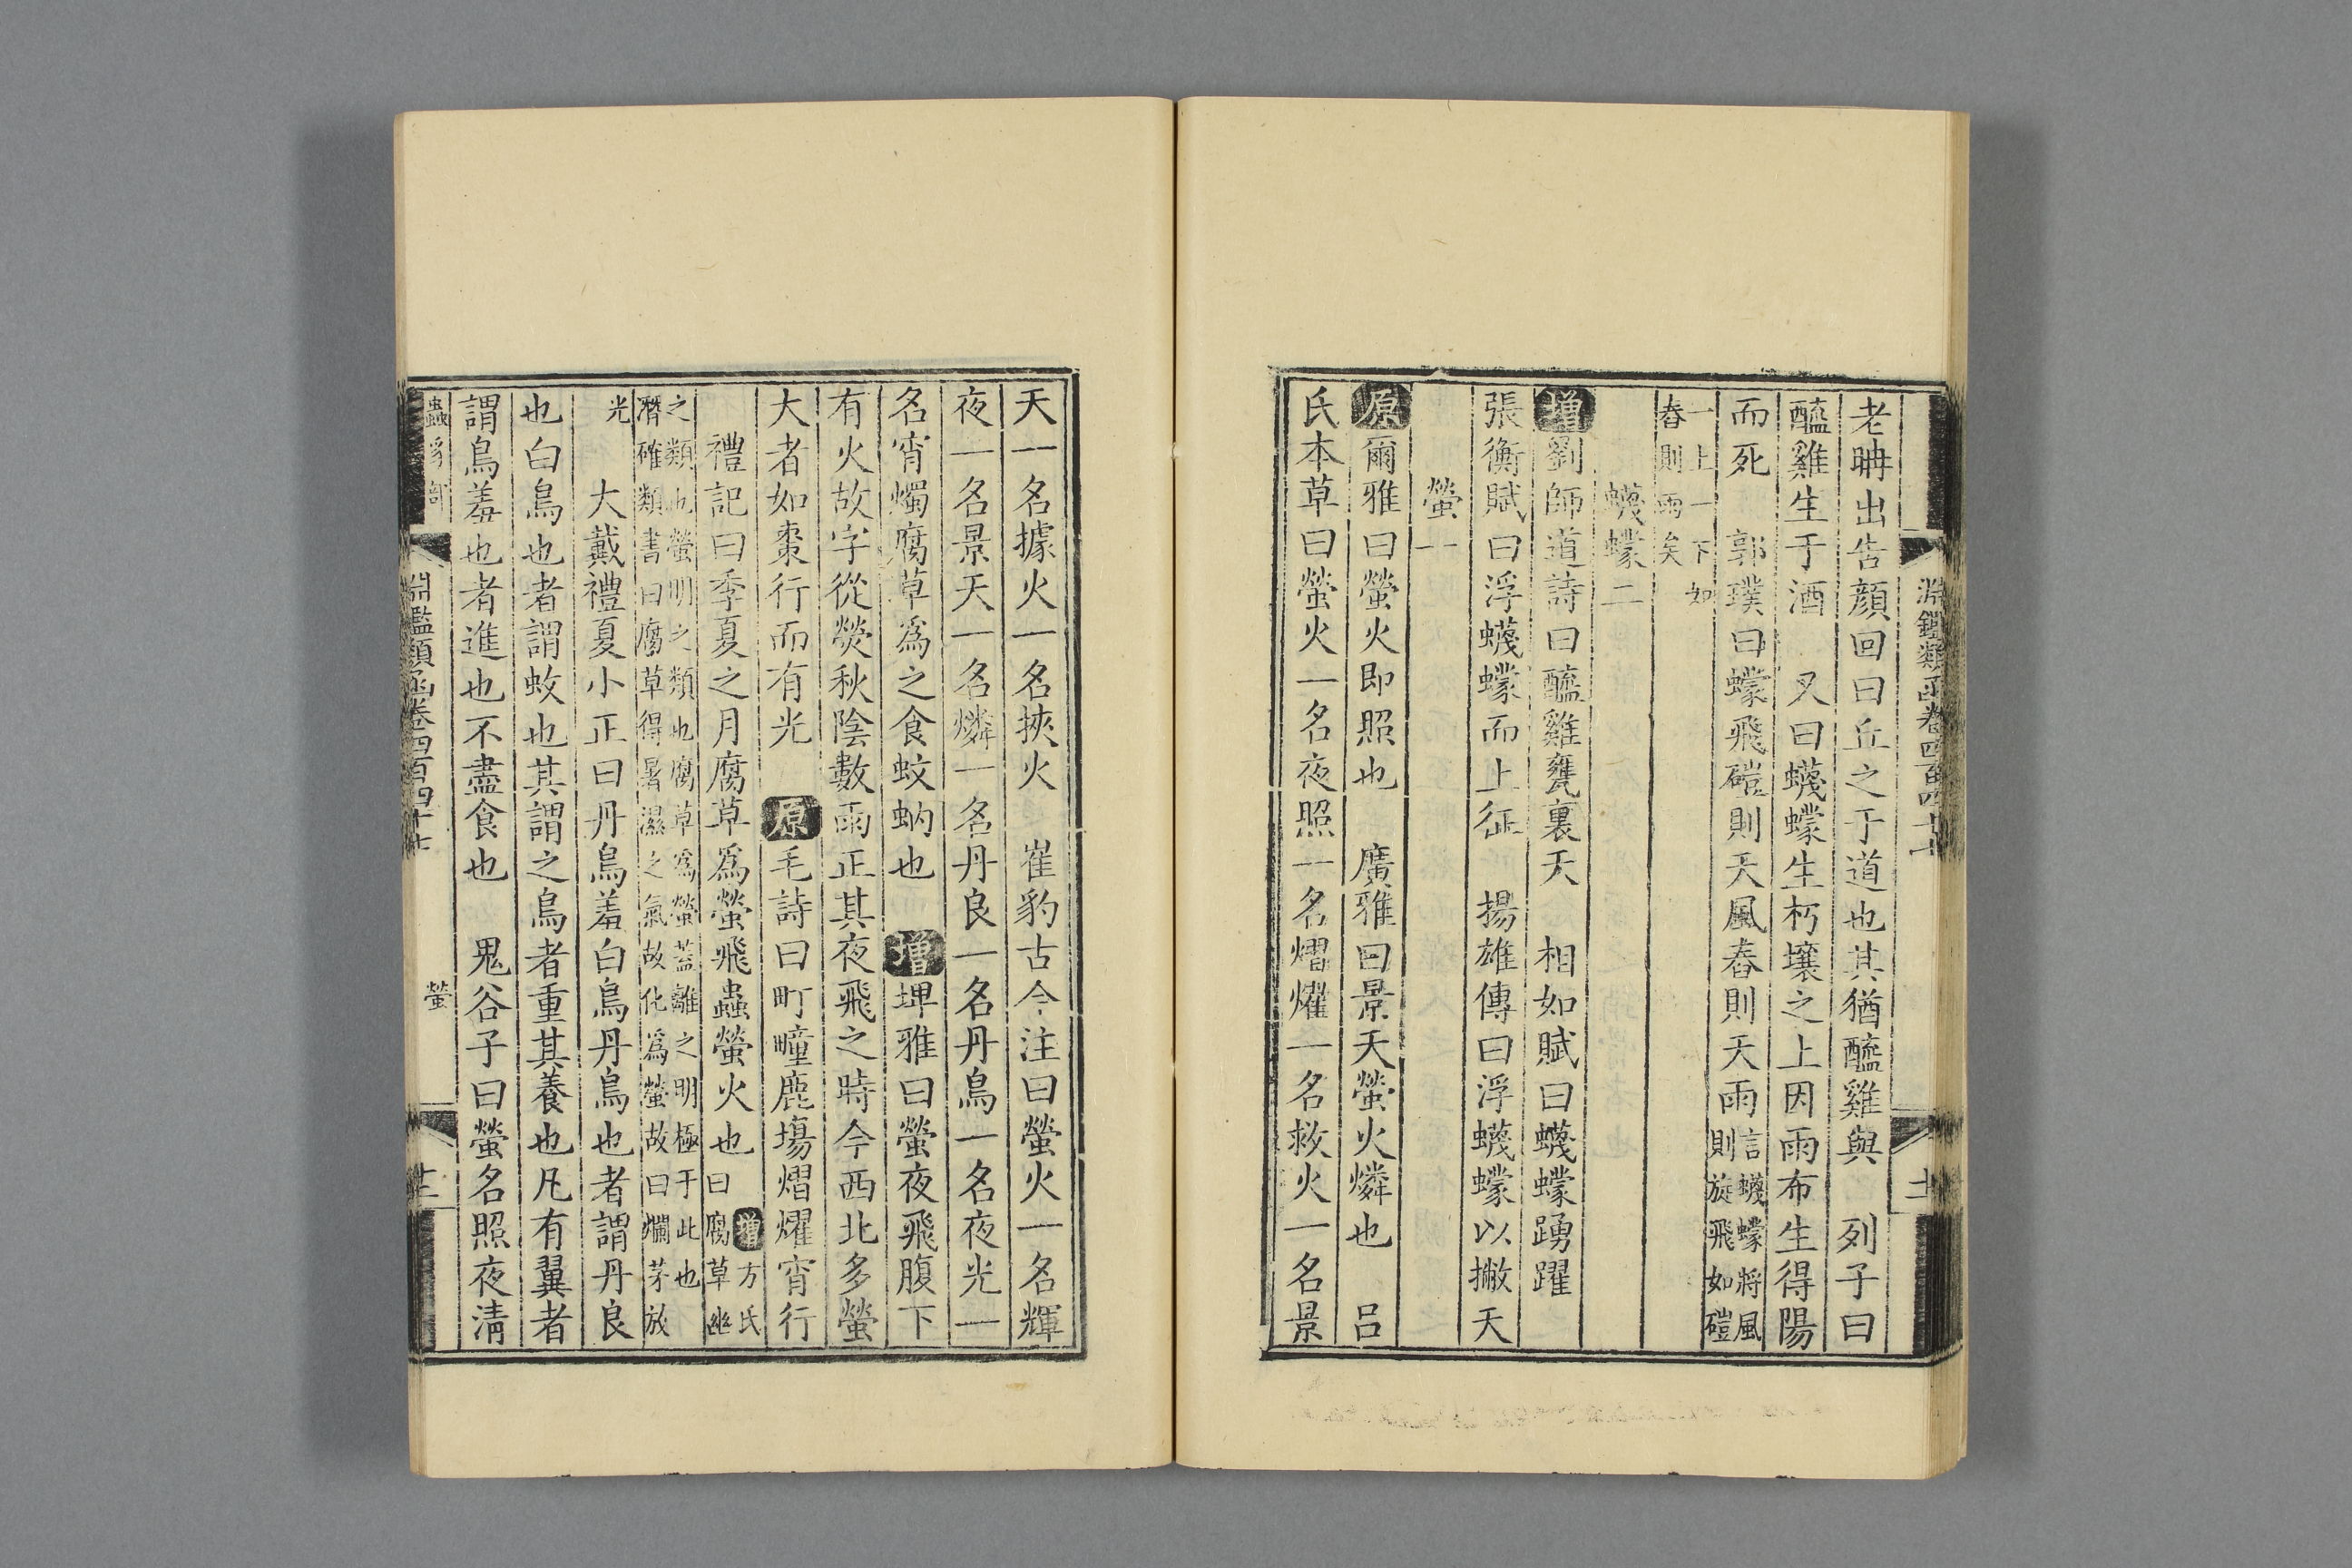 淵鑑類函卷四百四十七
十一
老聃出告顏回曰丘之于道也其猶醯雞與　列子曰
醯雞生于酒　又曰蠛蠓生朽壤之上因雨布生得陽
而死　郭璞曰蠓飛磑則天風舂則天雨言蠛蠓將風則旋飛如磑
一上一下如舂則雨矣
蠛蠓二
增劉師道詩曰醯雞甕裏天　相如賦曰蠛蠓踴躍
張衡賦曰浮蠛蠓而上征　揚雄傳曰浮蠛蠓以撇天
螢一
原爾雅曰螢火即照也　廣雅曰景天螢火燐也　呂
氏本草曰螢火一名夜照一名熠燿一名救火一名景
天一名據火一名挾火　崔豹古今注曰螢火一名輝
夜一名景天一名燐一名丹良一名丹鳥一名夜光一
名宵燭腐草爲之食蚊蚋也　增埤雅曰螢夜飛腹下
有火故字從熒秋陰數雨正其夜飛之時今西北多螢
大者如棗行而有光　原毛詩曰町畽鹿場熠燿宵行
禮記曰季夏之月腐草爲螢飛蟲螢火也增方氏曰腐草幽
之類也螢明之類也腐草爲螢蓋離之明極于此也
潛確類書曰腐草得暑濕之氣故化爲螢故曰爛茅放
光　大戴禮夏小正曰丹鳥羞白鳥丹鳥也者謂丹良
也白鳥也者謂蚊也其謂之鳥者重其養也凡有翼者
謂鳥羞也者進也不盡食也　鬼谷子曰螢名照夜淸
蟲豸部
淵鑑類函卷四百四十七
螢
十二